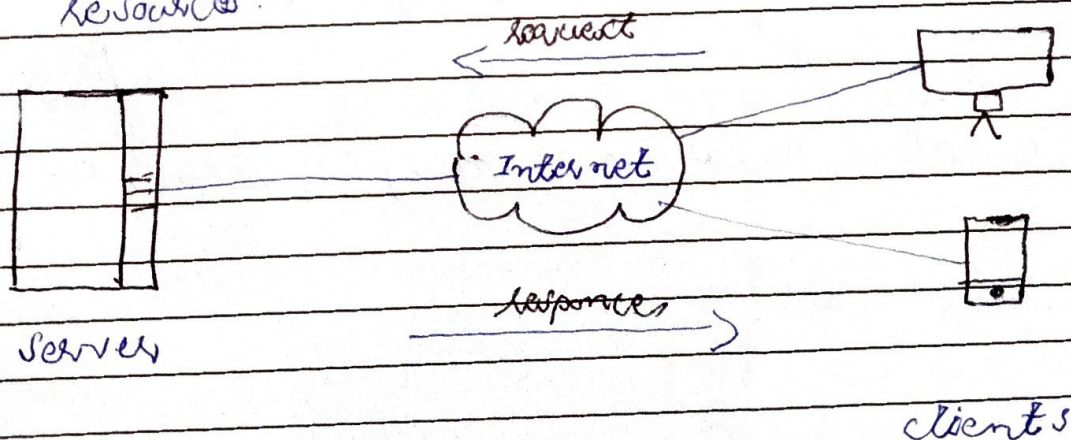 resources.
request
Internet
responces
Server
clients